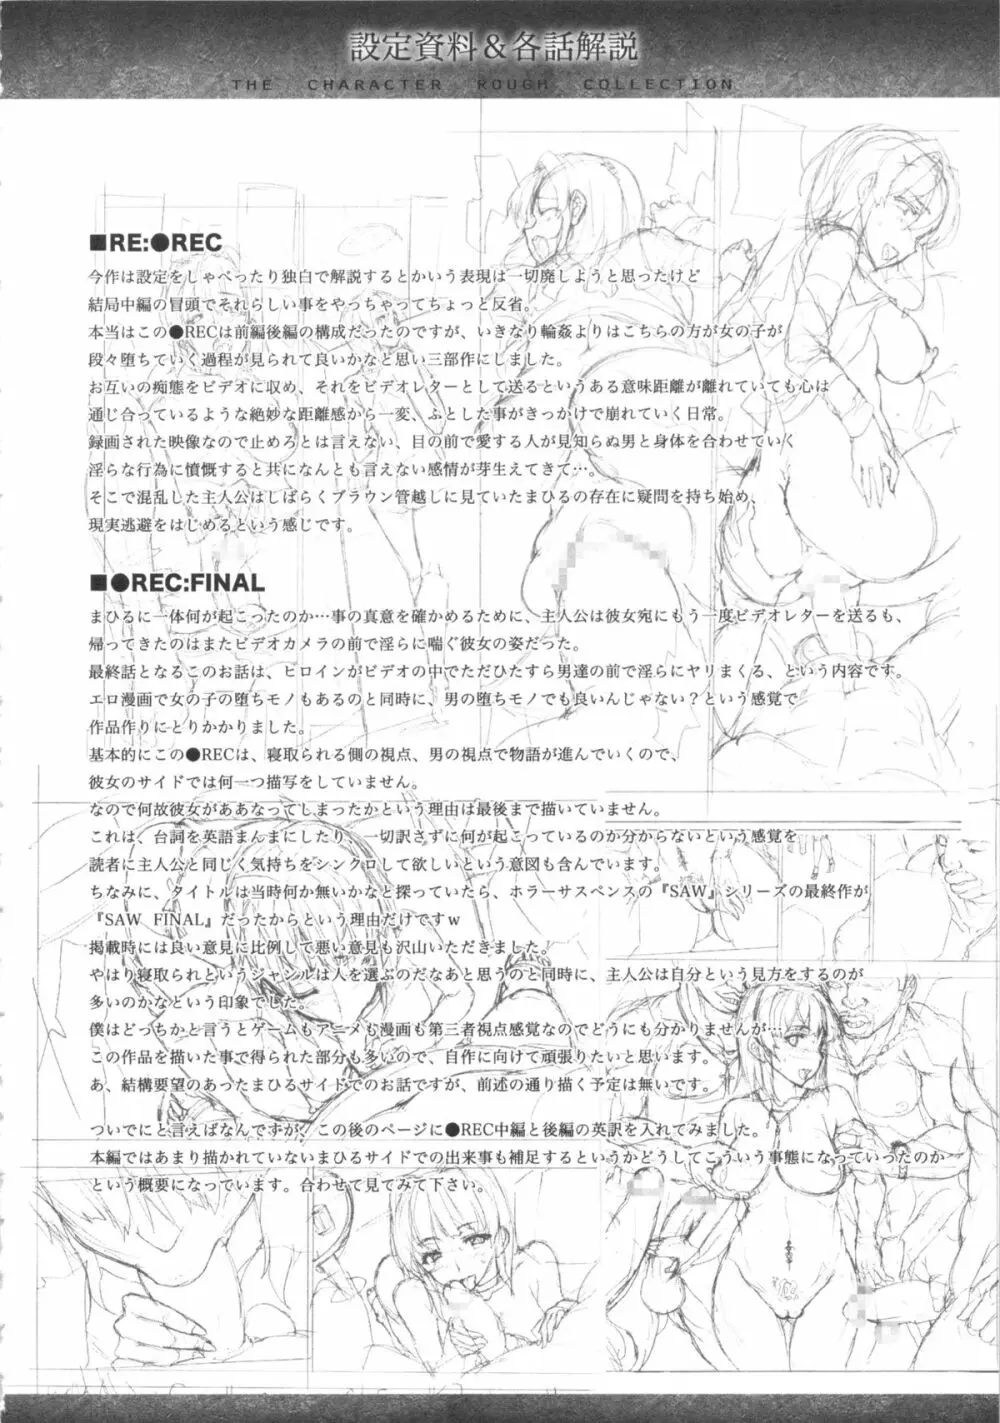 設定資料＆各話解説
THE CHARACTER ROUGH COLLECTION
■RE:●REC
今作は設定をしゃべったり独白で解説するとかいう表現は一切廃しようと思ったけど
結局中編の冒頭でそれらしい事をやっちゃってちょっと反省。
本当はこの●RECは前編後編の構成だったのですが、いきなり輪姦よりはこちらの方が女の子が
段々堕ちていく過程が見られて良いかなと思い三部作にしました。
お互いの痴態をビデオに収め、それをビデオレターとして送るというある意味距離が離れていても心は
通じ合っているような絶妙な距離感から一変、ふとした事がきっかけで崩れていく日常。
録画された映像なので止めろとは言えない、目の前で愛する人が見知らぬ男と身体を合わせていく
淫らな行為に憤慨すると共になんとも言えない感情が芽生えてきて…。
そこで混乱した主人公はしばらくブラウン管越しに見ていたまひるの存在に疑問を持ち始め、
現実逃避をはじめるという感じです。
■●REC:FINAL
まひるに一体何が起こったのか…事の真意を確かめるために、主人公は彼女宛にもう一度ビデオレターを送るも、
帰ってきたのはまたビデオカメラの前で淫らに喘ぐ彼女の姿だった。
最終話となるこのお話は、ヒロインがビデオの中でただひたすら男達の前で淫らにヤリまくる、という内容です。
エロ漫画で女の子の堕ちモノもあるのと同時に、男の堕ちモノでも良いんじゃない？という感覚で
作品作りにとりかかりました。
基本的にこの●RECは、寝取られる側の視点、男の視点で物語が進んでいくので、
彼女のサイドでは何一つ描写をしていません。
なので何故彼女がああなってしまったかという理由は最後まで描いていません。
これは、台詞を英語まんまにしたり、一切訳さずに何が起こっているのか分からないという感覚を
読者に主人公と同じく気持ちをシンクロして欲しいという意図も含んでいます。
ちなみに、タイトルは当時何か無いかなと探っていたら、ホラーサスペンスの『SAW』シリーズの最終作が
『SAW FINAL』だったからという理由だけですｗ
掲載時には良い意見に比例して悪い意見も沢山いただきました。
やはり寝取られというジャンルは人を選ぶのだなあと思うのと同時に、主人公は自分という見方をするのが
多いのかなという印象でした。
僕はどっちかと言うとゲームもアニメも漫画も第三者視点感覚なのでどうにも分かりませんが…
この作品を描いた事で得られた部分も多いので、自作に向けて頑張りたいと思います。
あ、結構要望のあったまひるサイドでのお話ですが、前述の通り描く予定は無いです。
ついでにと言えばなんですが、この後のページに●REC中編と後編の英訳を入れてみました。
本編ではあまり描かれていないまひるサイドでの出来事も補足するというかどうしてこういう事態になっていったのか
という概要になっています。合わせて見てみて下さい。